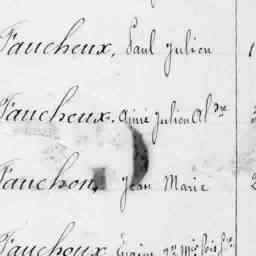 Faucheux, Paul Julien
Faucheux. Aimé Julien Al dre
Fauchon, Jean Marie
Fauchoux